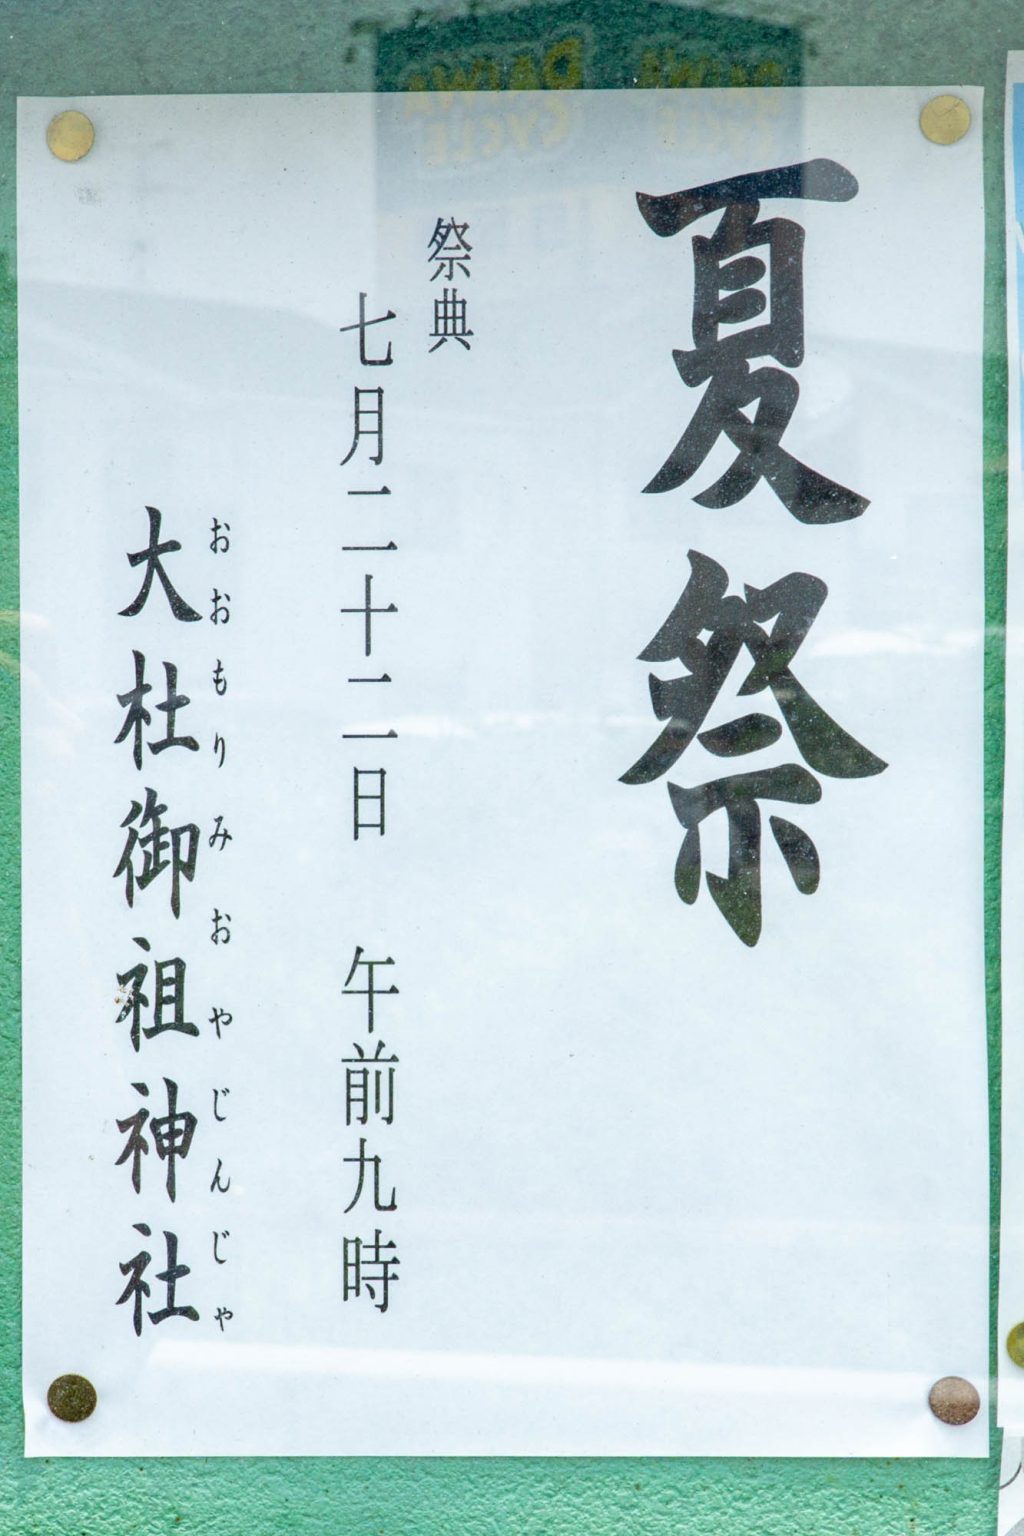 夏祭
祭典
七月二十二日　午前九時
大杜御祖神社
おおもりみおやじんじゃ
DAIWA
CYCLE